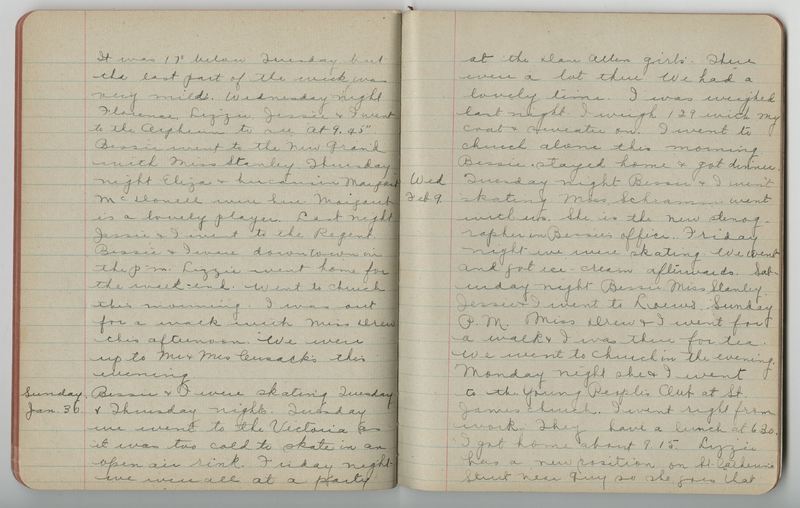 It was 17° below Tuesday but
the last part of the week was
very mild. Wednesday night
Florence, Lizzie, Jessie & I went
to the Orpheum to see "At 9.45"
Bessie went to the New Grand
with Miss Stanley Thursday
night Eliza & her cousin Margaret
McDonell were here Margaret
is a lovely player. Last night
Jessie & I went to the Regent.
Bessie & I were downtown in
the p.m. Lizzie went home for
the week-end. Went to church
this morning. I was out
for a walk with Miss Drew
this afternoon. We were
up to Mr & Mrs Cusack's this
evening
Sunday Bessie & I were skating Tuesday
Jan. 30. & Thursday night. Tuesday
we went to the Victoria as
it was too cold to skate in an
open air rink. Friday night
we were all at a party
at the girls. There
were a lot there We had a
lovely time. I was weighed
last night. I weigh 129 with my
coat & sweater on. I went to
church alone this morning
Bessie stayed home & got dinner.
Wed Tuesday night Bessie & I went
Feb 9 skating Miss went
with us. She is the new stenog-
rapher in Bessie's office. Friday
night we were skating We went
and got ice-cream afterwards. Sat-
urday night Bessie, Miss Stanley
Jessie & I went to Loews. Sunday
P.M. Miss Drew & I went for
a walk & I was there for tea.
We went to church in the evening.
Monday night she & I went
to the Young People's Club at St.
James church. I went right from
work. They have a lunch at 6.30.
I got home about 9.15. Lizzie
has a new position, on St. Catherine
Street near Guy so she goes that